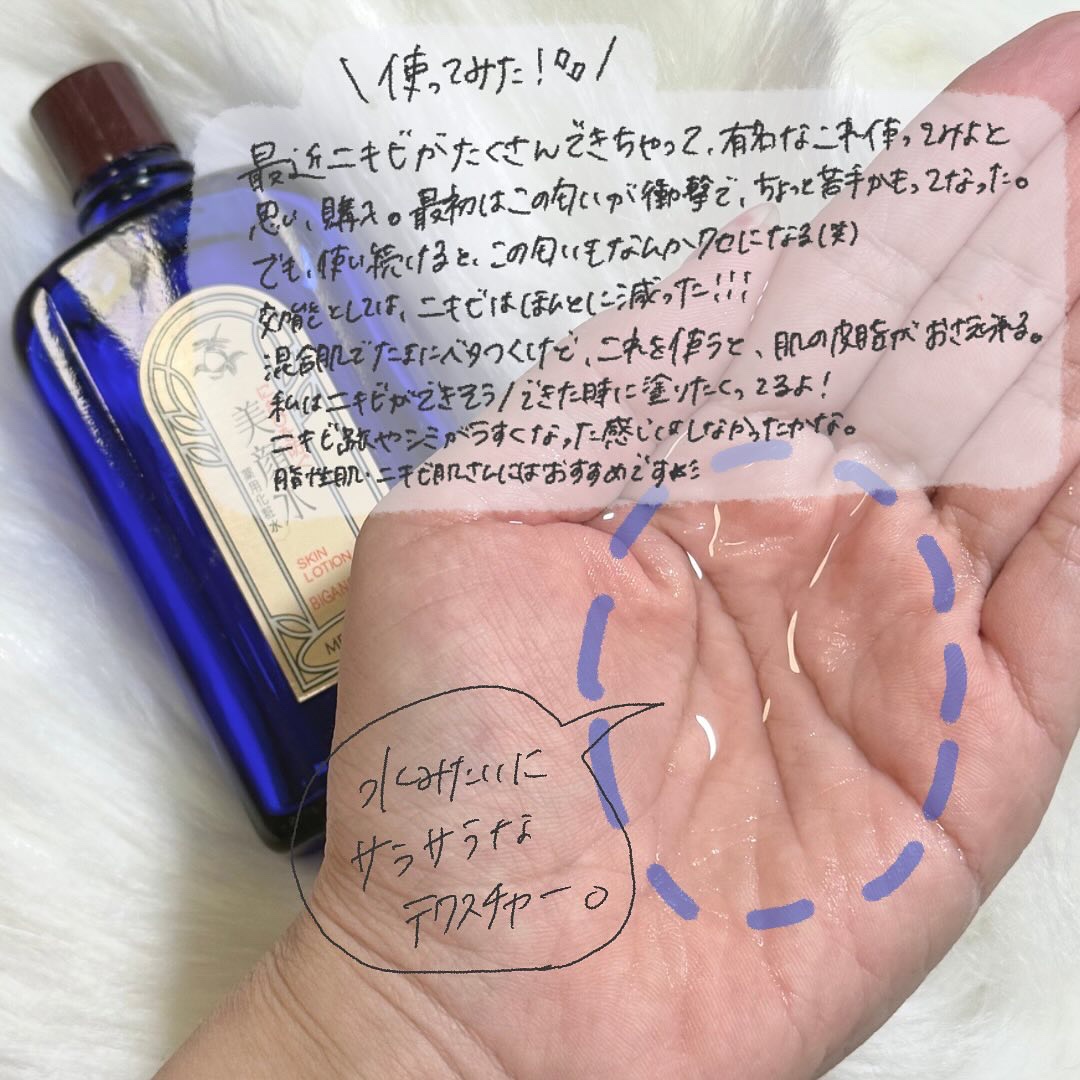 \ 使ってみた! /
最近ニキビがたくさんできちゃって、有名なこれ使ってみよと
思い、購入。最初はこの匂いが衝撃で、ちょっと苦手かもってなった。
でも、使い続けると、この匂いもなんかクセになる(笑)
効能としては、ニキビはほんとに減った!!!
混合肌でたまにベタつくけど、これを使うと、肌の皮脂がおさえれる。
私はニキビができそう/できた時に塗りたくってるよ!
ニキビ跡やシミがうすくなった感じはしなかったかな。
脂性肌・ニキビ肌さんにはおすすめです
美顔水
薬用化粧水
SKIN
LOTION
BIGAN
ME
水みたいに
サラサラな
テクスチャー。